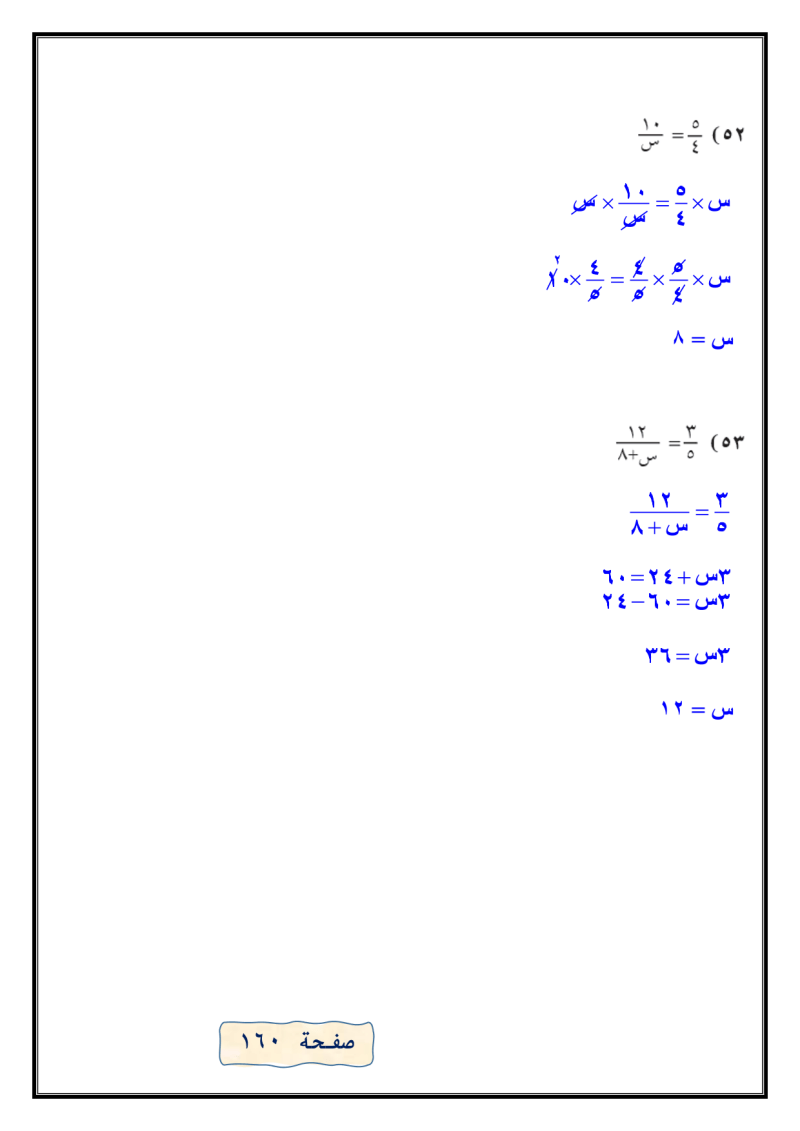 ٥٢) ٥/٤ = ١٠/س
س × ٥/٤ = ١٠/س × س
س × ٥/٤ × ٤/٥ = ٤/٥ × ١٠ ٢
س = ٨
٥٣) ٣/٥ = ١٢/س+٨
٣/٥ = ١٢/س + ٨
٣س + ٢٤ = ٦٠
٣س = ٦٠ − ٢٤
٣س = ٣٦
س = ١٢
صفحة ١٦٠